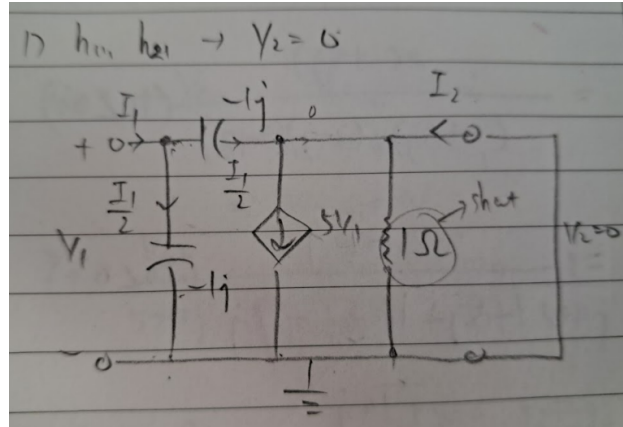 1) h₁₁, h₂₁ → V₂ = 0
I₁ -1j 0 I₂
+
I₁/2 I₁/2
V₁ 5V₁ 1Ω short V₂=0
-1j
-